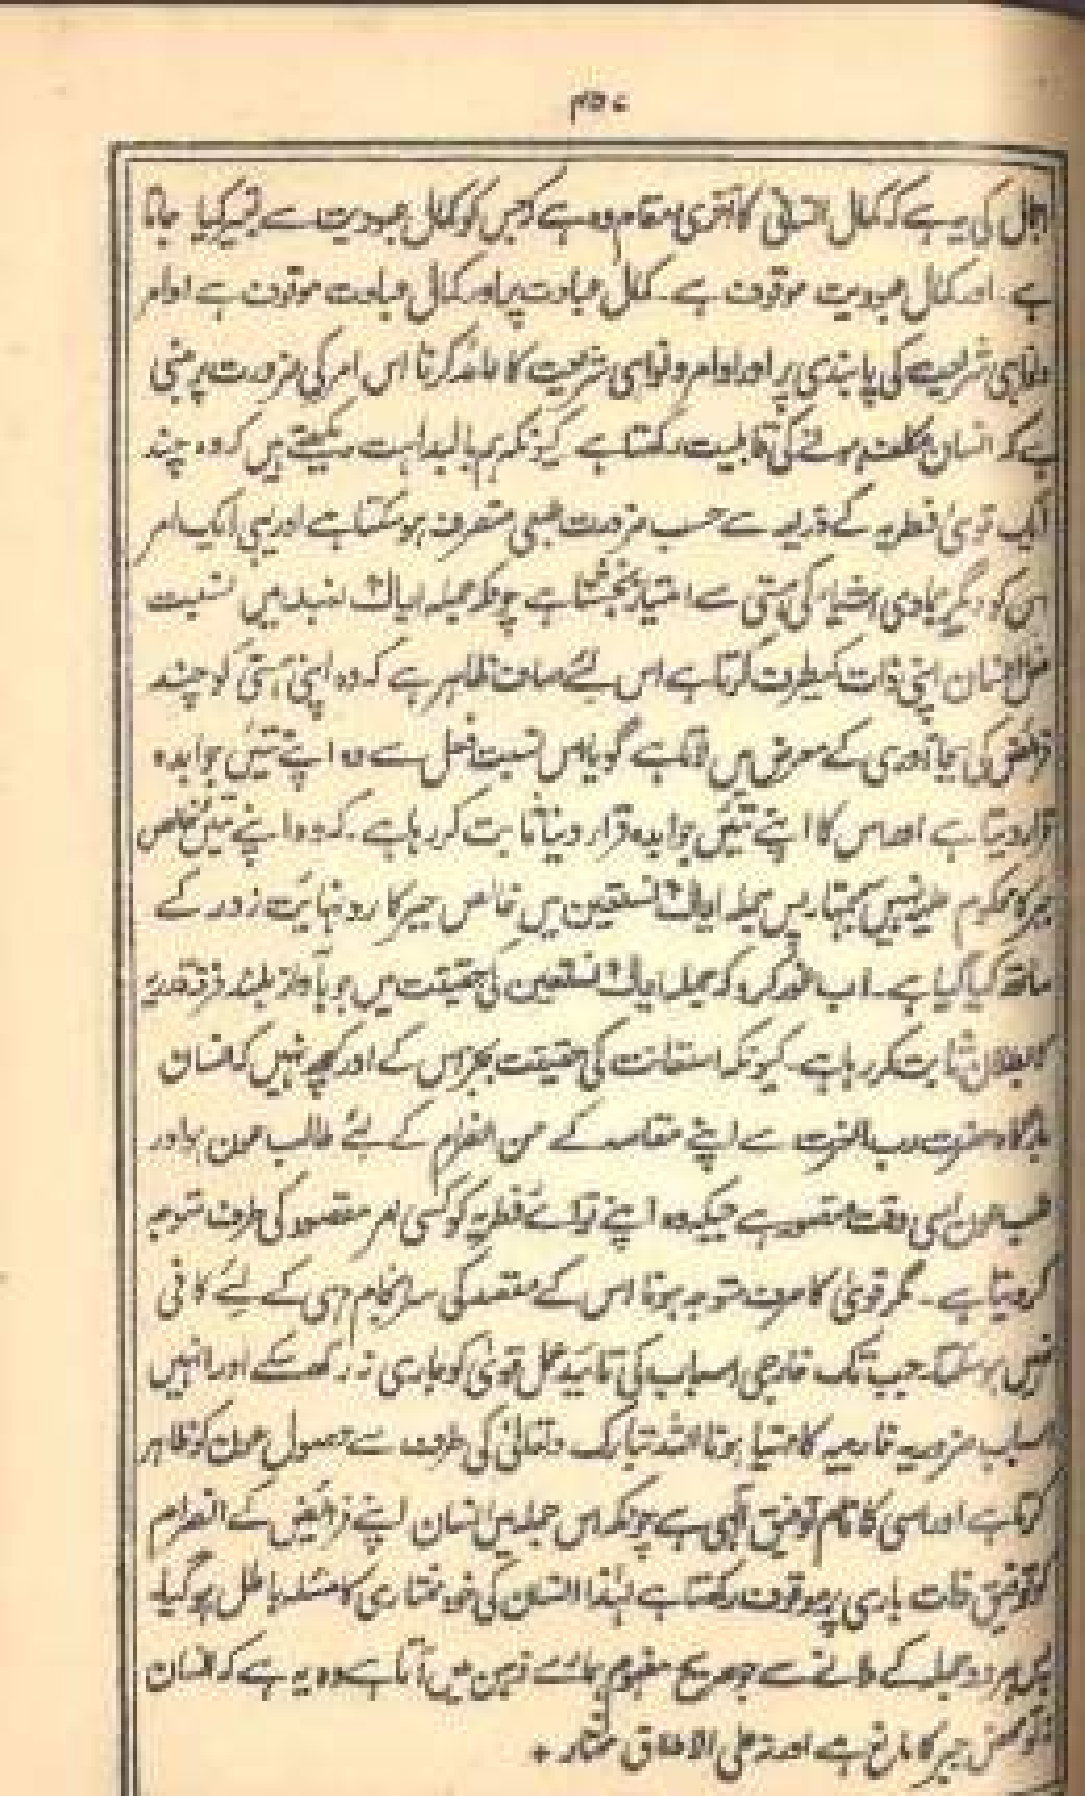 ۴۵۰
اجمال کی یہ ہے کہ کمال انسانی کا آخری مقام وہ ہے کہ جس کو کمال عبودیت سے تعبیر کیا جاتا
ہے۔ اور کمال عبودیت موقوف ہے۔ کمال عبادت پر اور کمال عبادت موقوف ہے اوامر
ونواہی شریعت کی پابندی پر اور اوامر و نواہی شریعت کا عائد کرنا اس امر کی ضرورت پر مبنی
ہے کہ انسان مکلف ہونے کی قابلیت رکھتا ہے کیونکہ ہم بالبداہت دیکھتے ہیں کہ وہ چند
ایک قویٰ فطریہ کے ذریعہ سے حسب ضرورت طبعی متصرف ہو سکتا ہے اور یہی ایک امر
اس کو دیگر مادی اشیاء کی ہستی سے امتیاز بخشتا ہے چونکہ جملہ ایاک نعبد میں نسبت
فعل انسان اپنی ذات کیطرف کرتا ہے اس لئے صاف ظاہر ہے کہ وہ اپنی ہستی کو چند
فرائض کی بجا آوری کے معرض میں لاتا ہے گویا اس نسبت فعل سے وہ اپنے تئیں جوابدہ
قرار دیتا ہے اور اس کا اپنے تئیں جوابدہ قرار دینا ثابت کر رہا ہے۔ کہ وہ اپنے تئیں خالص
جبر کا محکوم علیہ نہیں سمجھتا پس جملہ ایاک نستعین میں خالص جبر کا رد نہایت زور کے
ساتھ کیا گیا ہے۔ اب غور کرو کہ جملہ ایاک نستعین کی حقیقت میں جو بآواز بلند فرقہ قدریہ
کا بطلان ثابت کر رہا ہے۔ کیونکہ استعانت کی حقیقت بجز اس کے اور کچھ نہیں کہ انسان
بارگاہ حضرت رب العزت سے اپنے مقاصد کے حسن انصرام کے لئے طالب عون ہو اور
طلب عون اسی وقت متصور ہے جبکہ وہ اپنے قوائے فطریہ کو کسی امر مقصود کی طرف متوجہ
کر دیتا ہے۔ مگر قویٰ کا صرف متوجہ ہونا اس کے مقصد کی سرانجام دہی کے لئے کافی
نہیں ہو سکتا۔ جب تک خارجی اسباب کی تائید عمل قویٰ کو جاری نہ رکھ سکے اور انہیں
اسباب ضروریہ خارجیہ کا مہیا ہونا اللہ تبارک وتعالیٰ کی طرف سے حصول عون کو ظاہر
کرتا ہے اور اسی کا نام توفیق الٰہی ہے چونکہ اس جملہ میں انسان اپنے فرائض کے انصرام
کو توفیق ذات باری پر موقوف رکھتا ہے لہٰذا انسان کی خود مختاری کا مسئلہ باطل ہو گیا۔
پس ہر دو جملہ کے ملانے سے جو صریح مفہوم ہمارے ذہن میں آتا ہے وہ یہ ہے کہ انسان
نہ تو محض جبر کا ہے اور نہ علی الاطلاق مختار +